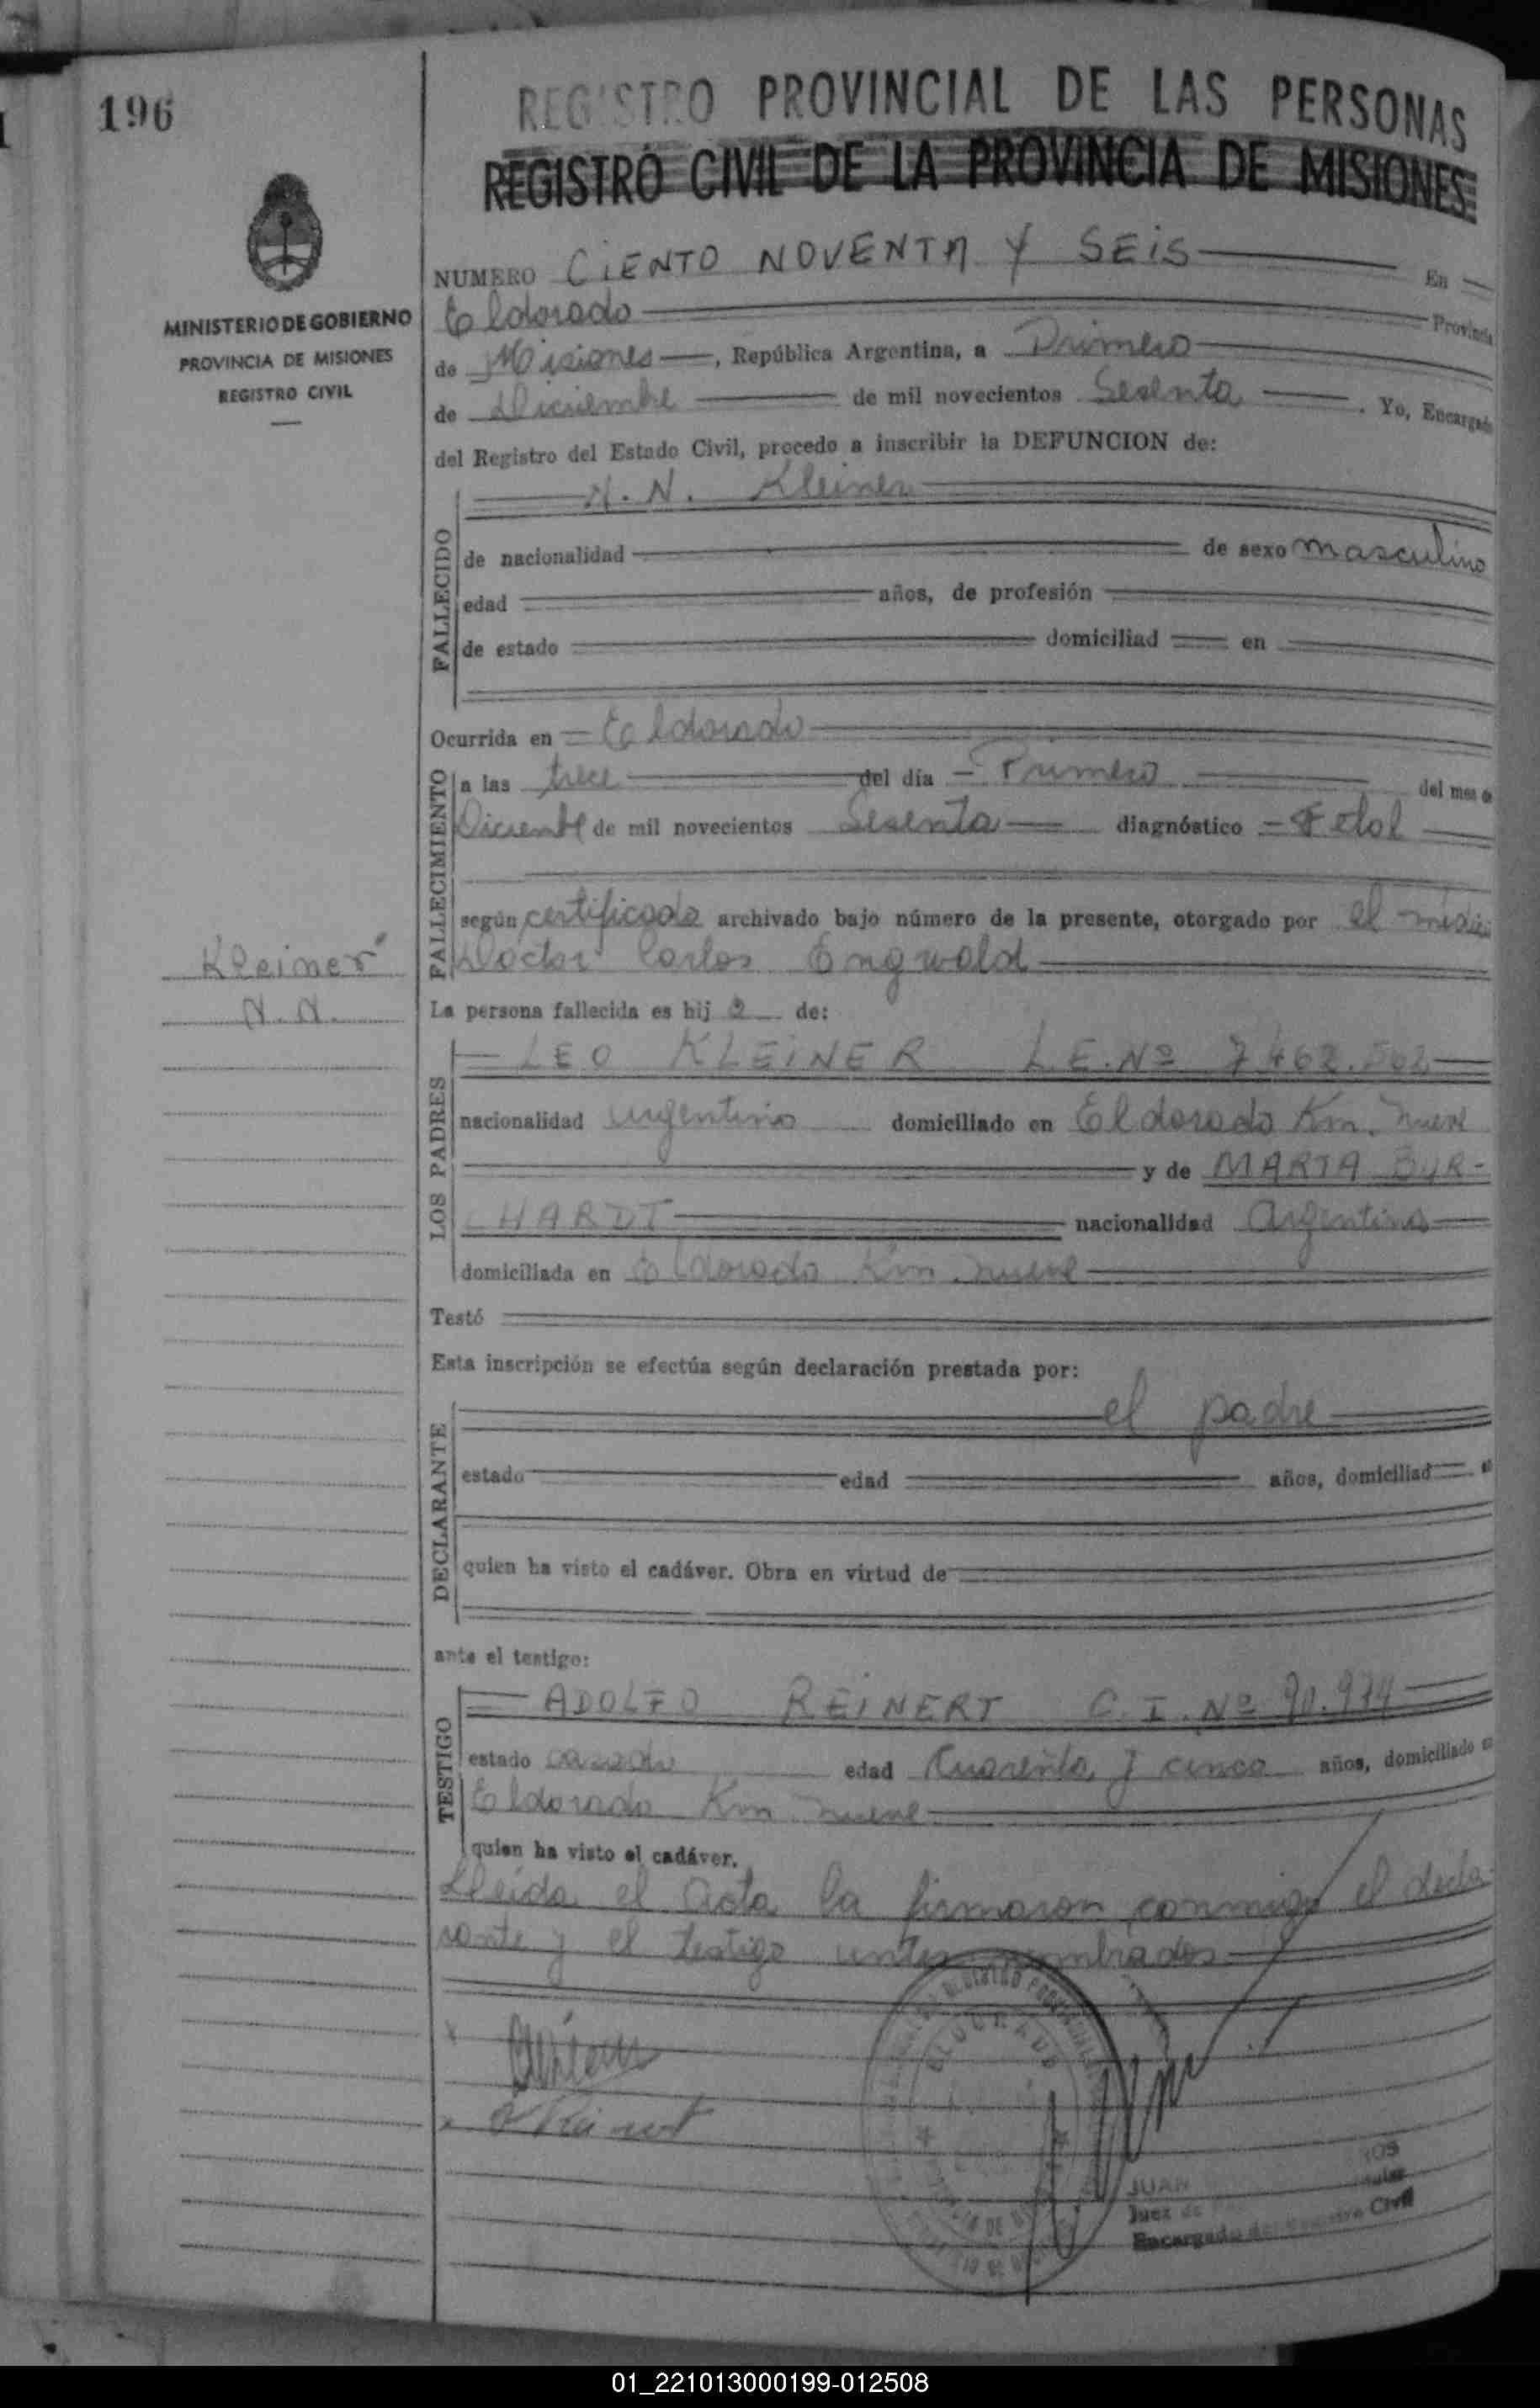 196
REGISTRO PROVINCIAL DE LAS PERSONAS
REGISTRO CIVIL DE LA PROVINCIA DE MISIONES
MINISTERIO DE GOBIERNO
PROVINCIA DE MISIONES
REGISTRO CIVIL
NUMERO CIENTO NOVENTA Y SEIS En
Eldorado Provincia
de Misiones, República Argentina, a Primero
de Diciembre de mil novecientos Sesenta. Yo, Encargado
del Registro del Estado Civil, procedo a inscribir la DEFUNCION de:
N. N. Kleiner
FALLECIDO
de nacionalidad de sexo masculino
edad años, de profesión
de estado domiciliad en
Ocurrida en Eldorado
FALLECIMIENTO
a las trece del día Primero del mes de
Diciembre de mil novecientos Sesenta diagnóstico Fetal
según certificado archivado bajo número de la presente, otorgado por el médico
Doctor Carlos Engwald
Kleiner
N. N.
La persona fallecida es hij o de:
LOS PADRES
LEO KLEINER L.E. Nº 7.462.562
nacionalidad argentino domiciliado en Eldorado Km. nueve
y de MARTA BUR-
CHARDT nacionalidad Argentina
domiciliada en Eldorado Km. nueve
Testó
Esta inscripción se efectúa según declaración prestada por:
DECLARANTE
el padre
estado edad años, domiciliad
quien ha visto el cadáver. Obra en virtud de
ante el testigo:
TESTIGO
ADOLFO REINERT C. I. Nº 90.974
estado casado edad Cuarenta y cinco años, domiciliado en
Eldorado Km nueve
quien ha visto el cadáver.
Lleida el acta la firmaron conmigo el decla
rante y el testigo antes nombrados
x
x A Reinert
ELDORADO
JUAN
Juez de
Encargado del Registro Civil
01_221013000199-012508